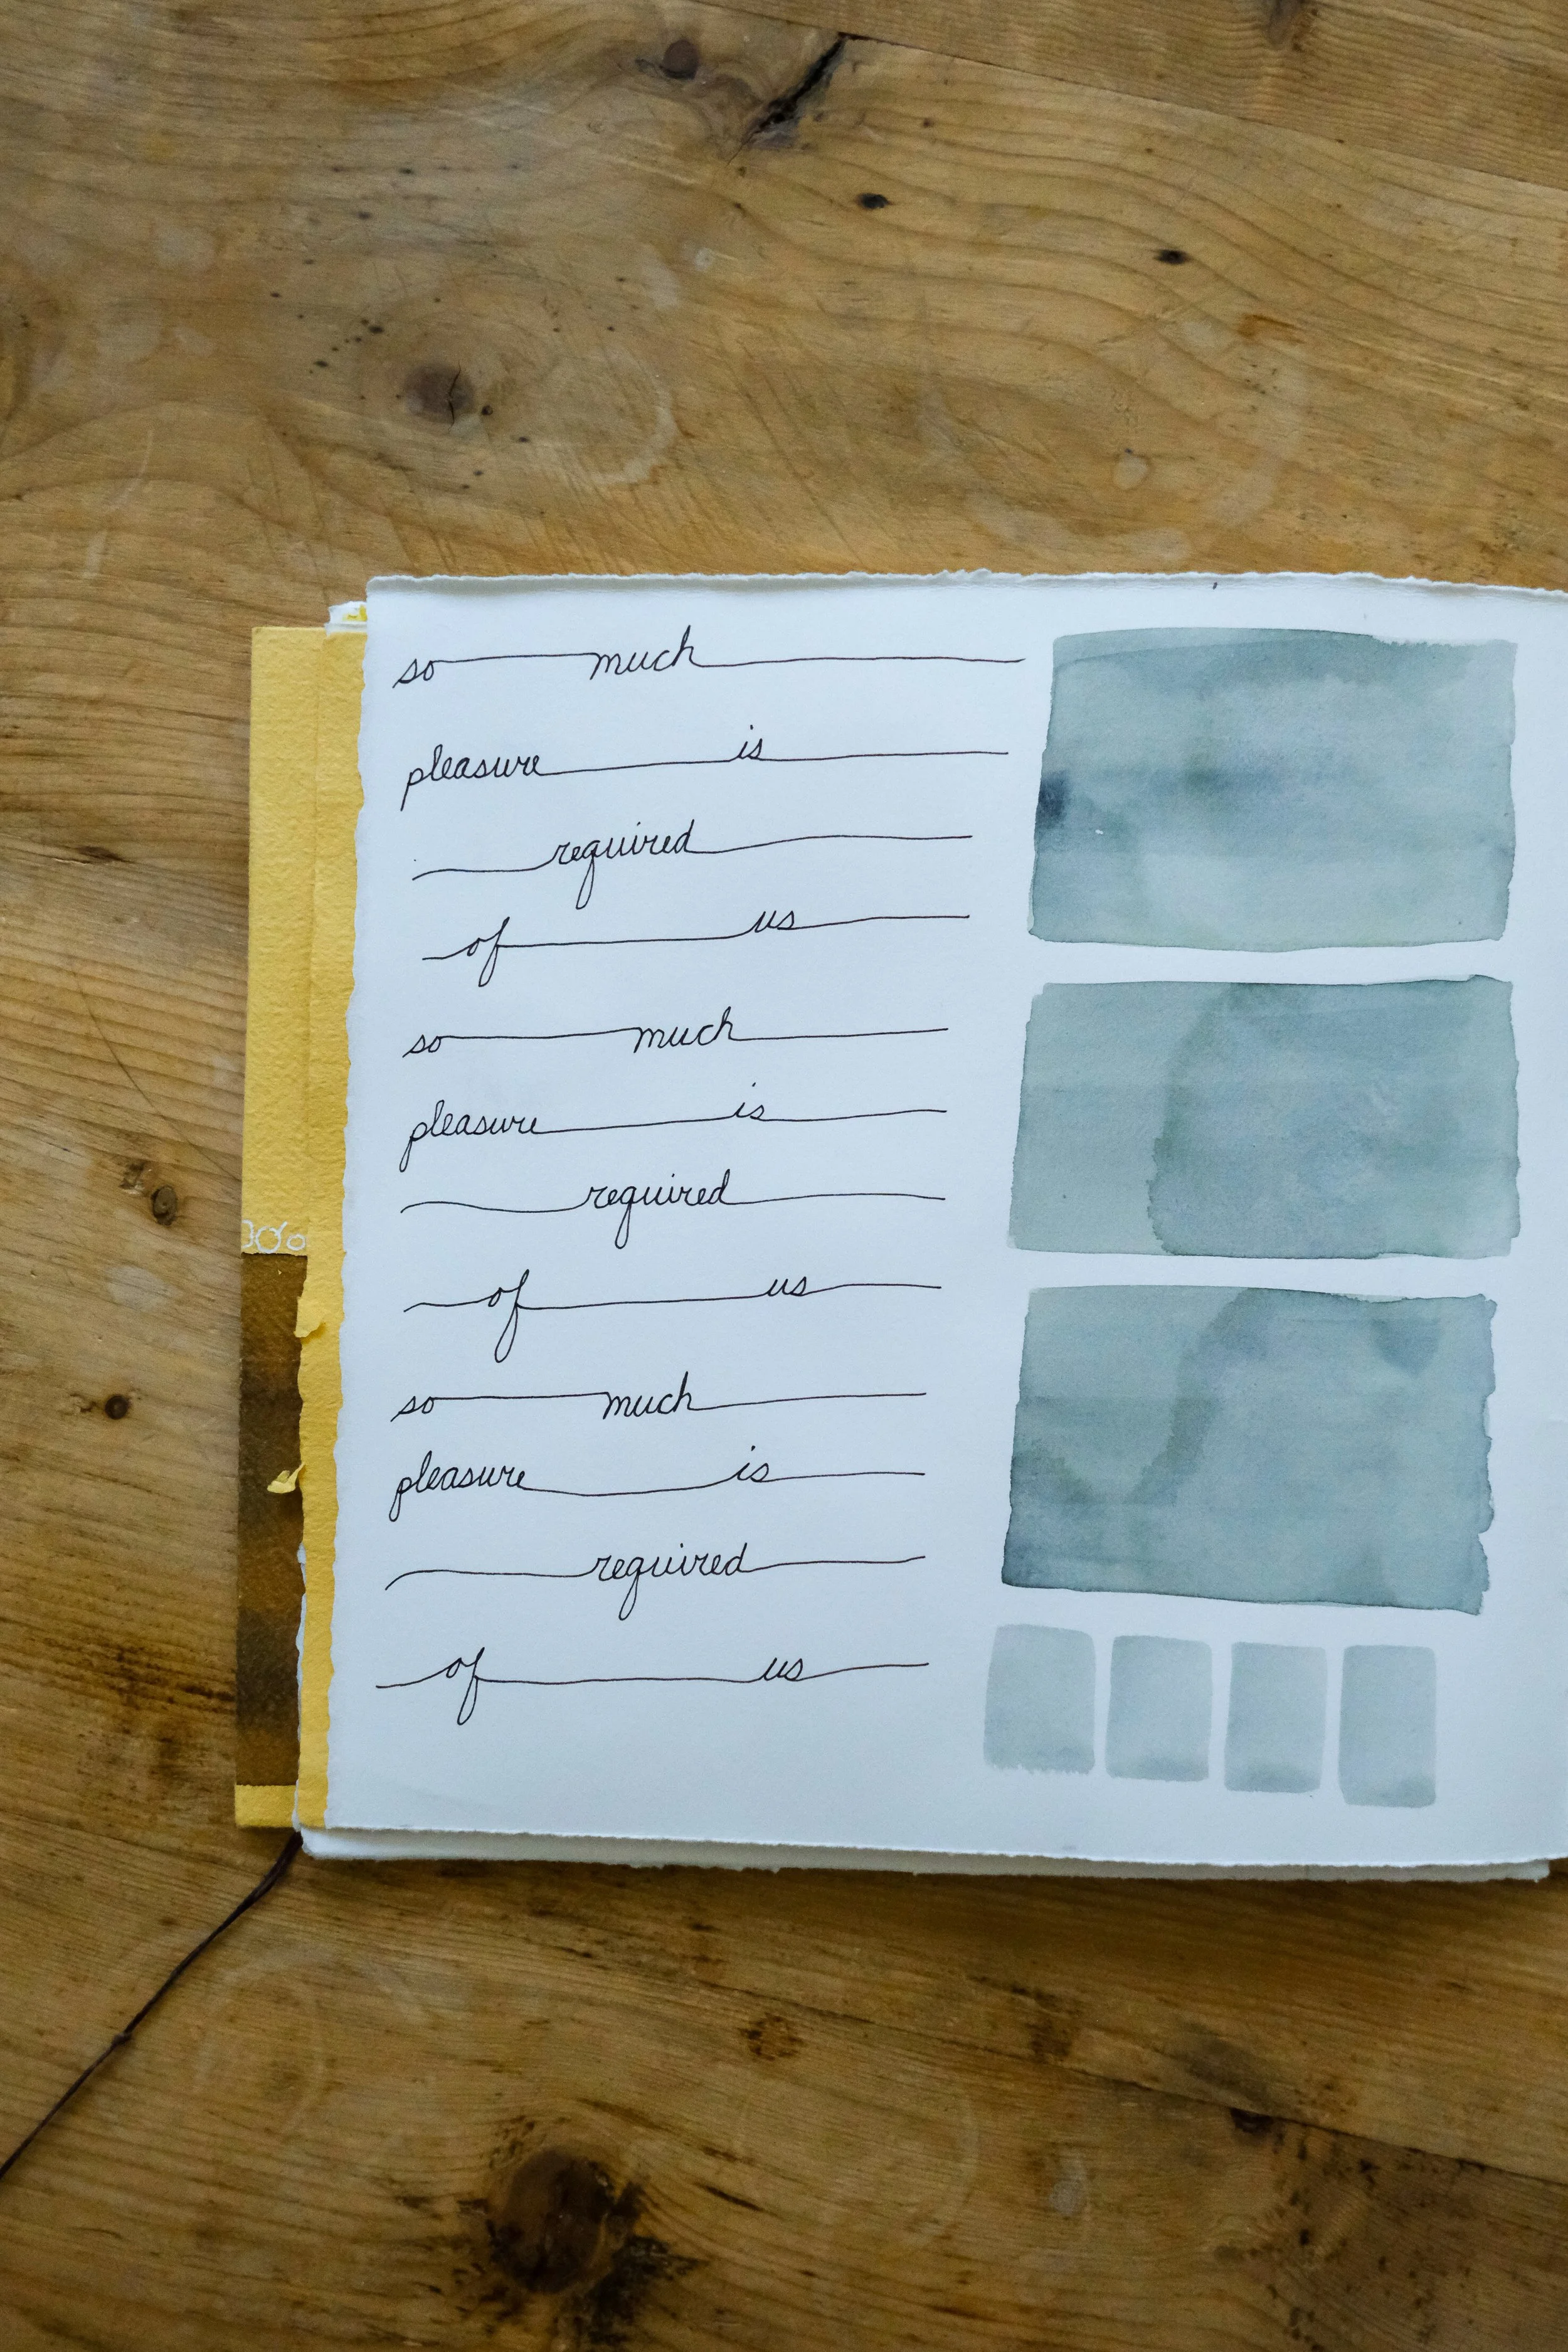 so much
pleasure is
required
of us
so much
pleasure is
required
of us
so much
pleasure is
required
of us